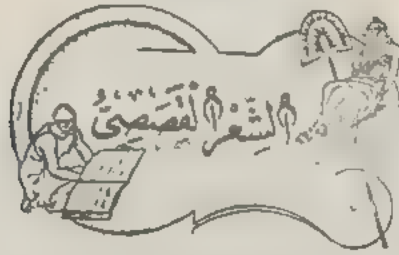 الشِّعْر القَصَصِيّ